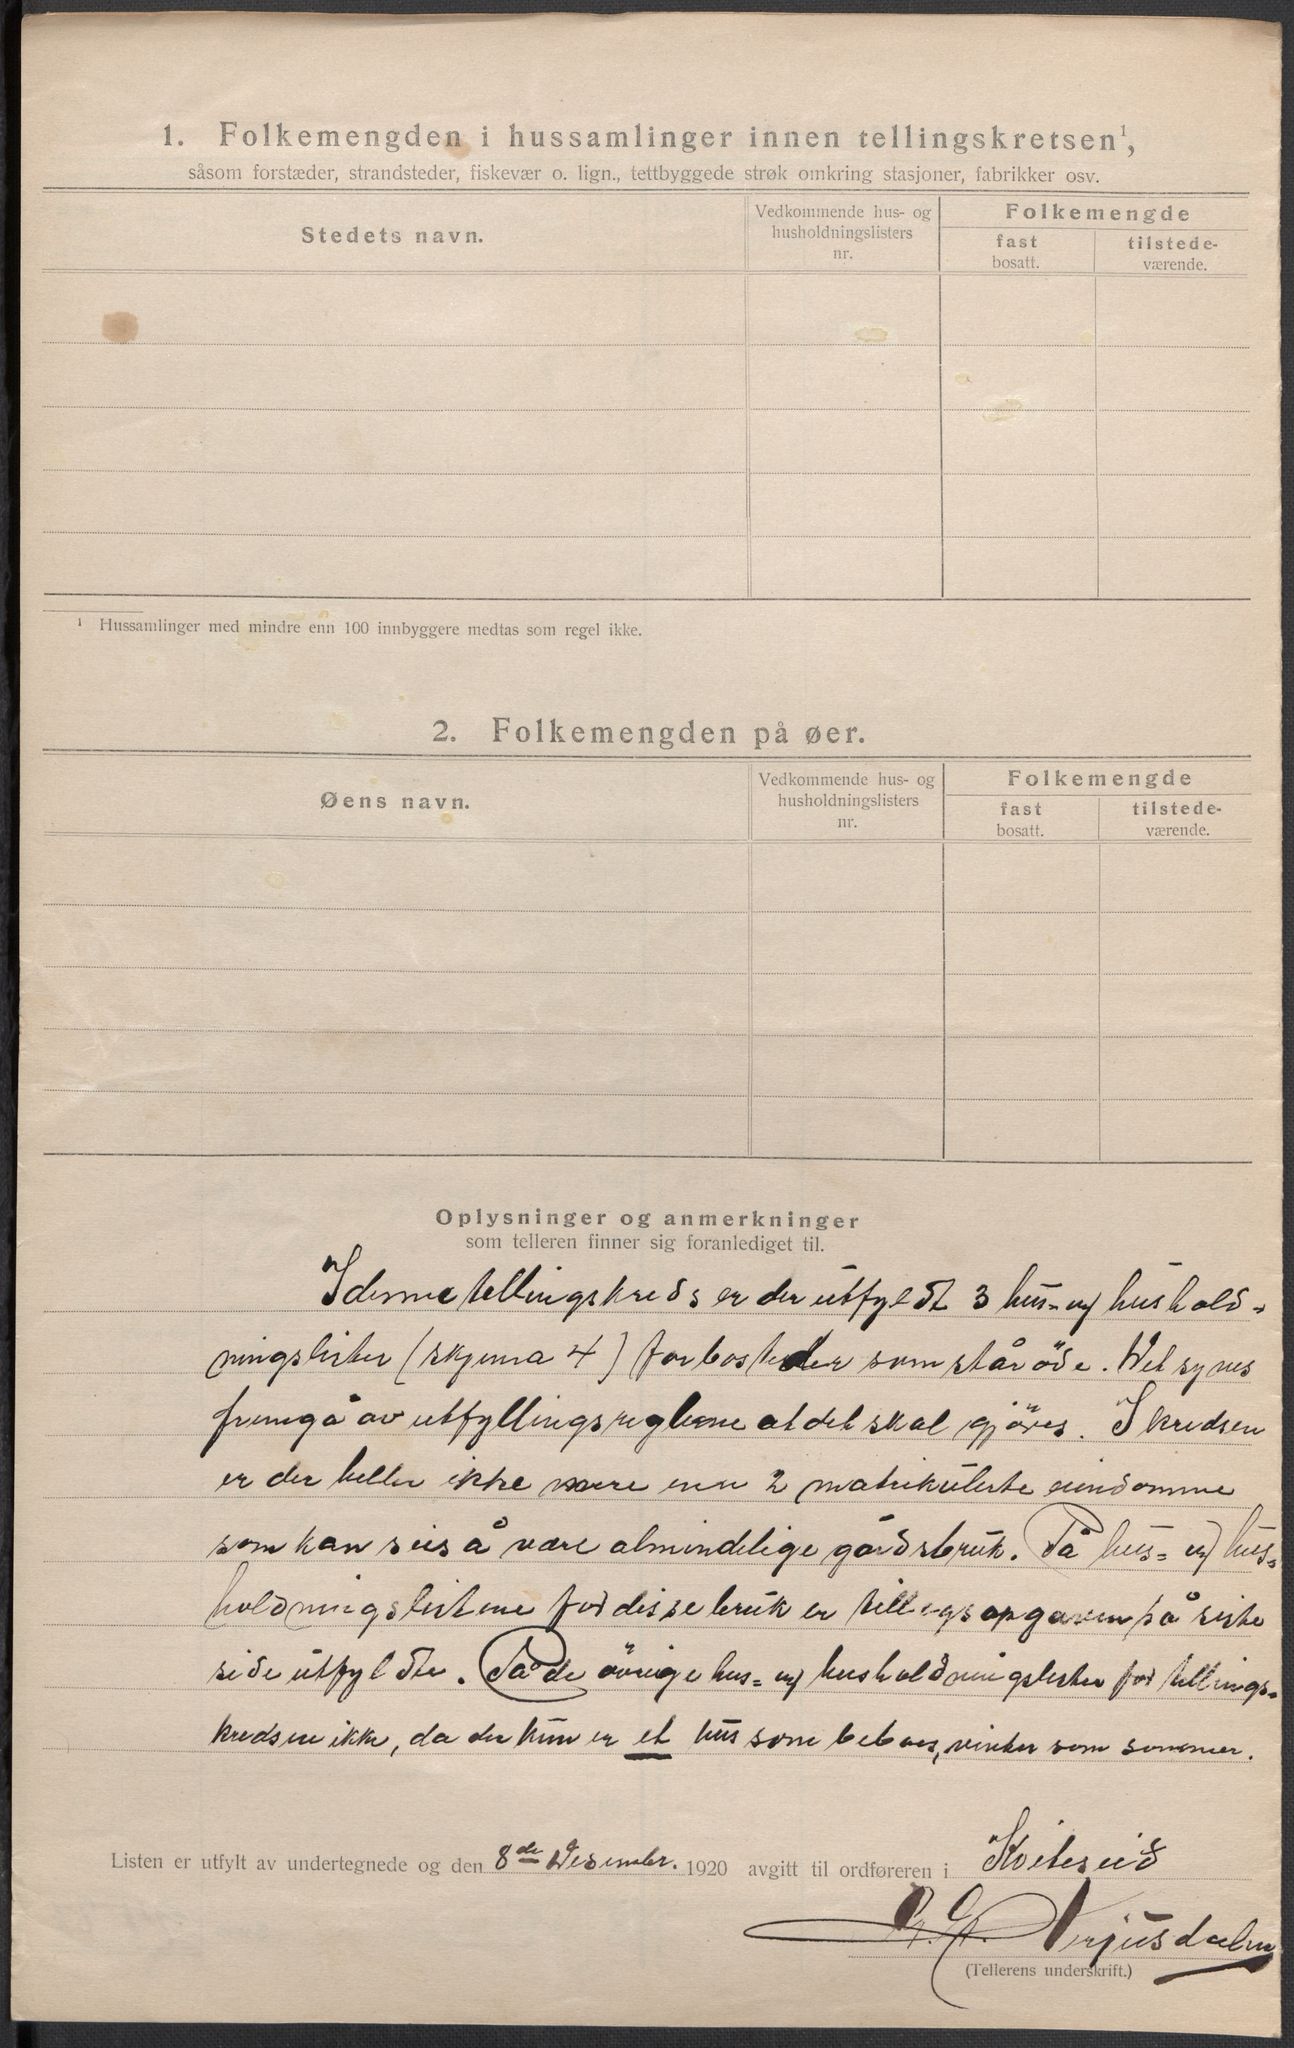 1. Folkemengden i hussamlinger innen tellingskretsen¹,
såsom forstæder, strandsteder, fiskevær o. lign., tettbyggede strøk omkring stasjoner, fabrikker osv.
Stedets navn.
Vedkommende hus- og
husholdningslisters
nr.
Folkemengde
fast
bosatt.
tilstede-
værende.
¹ Hussamlinger med mindre enn 100 innbyggere medtas som regel ikke.
2. Folkemengden på øer.
Øens navn.
Vedkommende hus- og
husholdningslisters
nr.
Folkemengde
fast
bosatt.
tilstede-
værende.
Oplysninger og anmerkninger
som telleren finner sig foranlediget til.
I denne tellingskreds er der utfyldt 3 hus- og hushold-
ningslister (skjema 4) for bosteder som står öde. Det synes
fremgå av utfyllingsreglene at det skal gjöres. I kredsen
er der heller ikke mere enn 2 matrikulerte eiendomme
som kan seies å være almindelige gårdsbruk. På hus- og hus-
holdningslistene for disse bruk er tillegsopgaven på siste
side utfyldte. På de övrige hus- og husholdningslister for tellings-
kredsen ikke, da der kun er et hus som beboes, vinter som sommer.
Listen er utfylt av undertegnede og den 8de Desember. 1920 avgitt til ordføreren i Kviteseid
(Tellerens underskrift.)